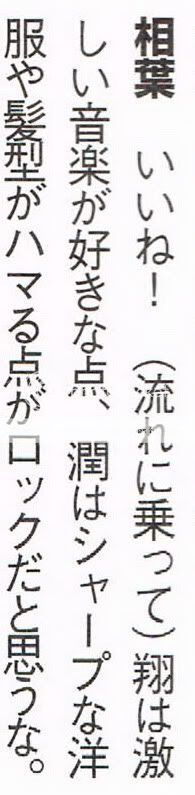 相葉　いいね！　（流れに乗って）翔は激
しい音楽が好きな点、潤はシャープな洋
服や髪型がハマる点がロックだと思うな。